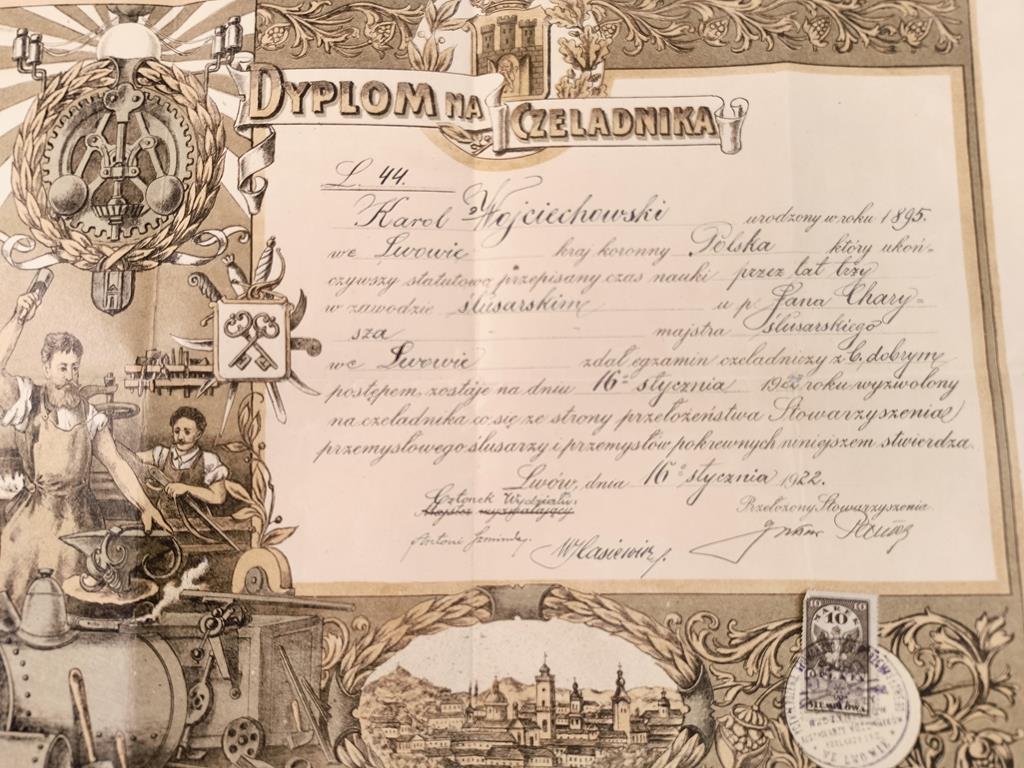 DYPLOM NA CZELADNIKA
L. 44.
Karol Wojciechowski urodzony w roku 1895.
we Lwowie kraj koronny Polska który ukoń-
czywszy statutową przepisany czas nauki przez lat trzy
w zawodzie ślusarskim u p. Jana Chary-
sza majstra ślusarskiego
we Lwowie zdał egzamin czeladniczy z b. dobrym
postępem, zostaje na dniu 16º stycznia 1922 roku wyzwolony
na czeladnika co się ze strony przełożeństwa Stowarzyszenia
przemysłowego ślusarzy i przemysłów pokrewnych niniejszem stwierdza.
Lwów, dnia 16º stycznia 1922.
Członek Wydziału: Przełożony Stowarzyszenia
Majster wyzwalający
Antoni
10 10
MAREK
10
POLSKA
STEMPLOWA
WE LWOWIE